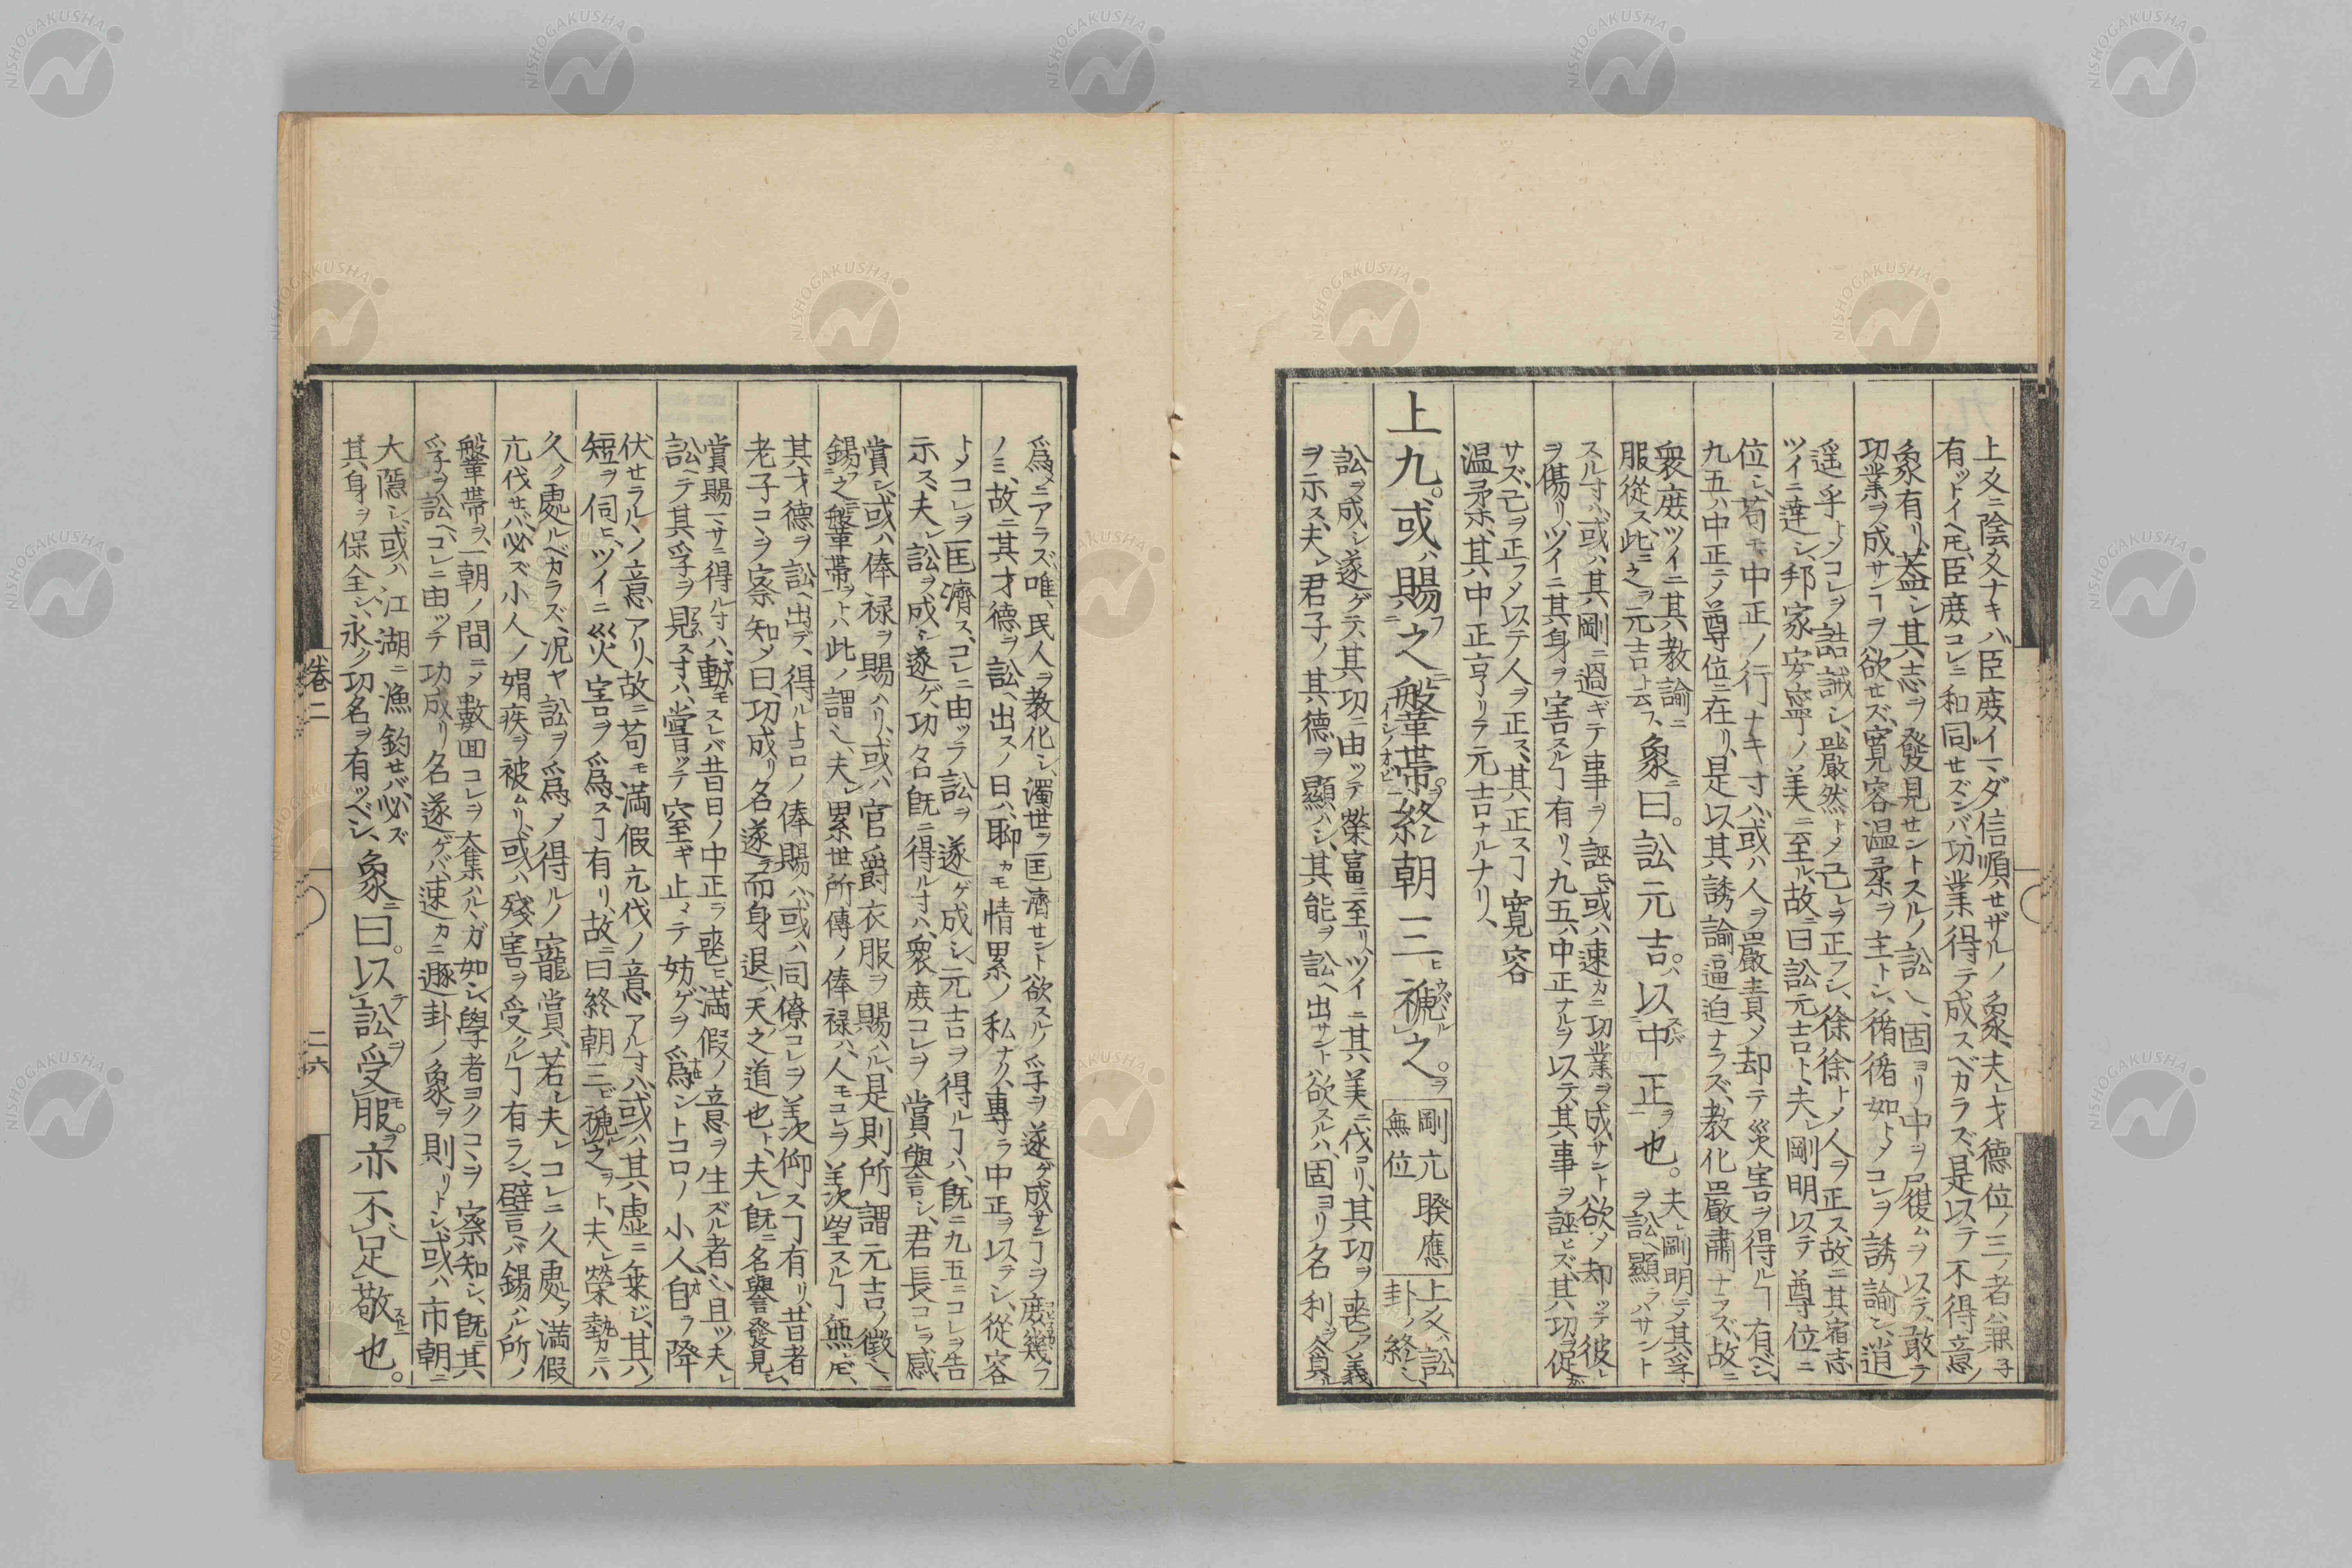 上爻ニ陰爻ナキハ臣庶イマダ信順セザルノ象、夫レ才德位ノ三ノ者ハ兼子
有ツトイヘ𪜈、臣庶コレニ和同セズンバ、功業得テ成スベカラズ、是以テ不得意ノ
象有リ、蓋シ其志ヲ發見セントスルノ訟ヘ、固ヨリ中ヲ履ムヲ以テ、敢テ
功業ヲ成サンヿヲ欲セズ、寬容温柔ヲ主トシ、循循如トメコレヲ誘諭シ、逍
遥乎トメコレヲ誥誡シ、嚴然トメ己レヲ正フシ、徐徐トメ人ヲ正ス、故ニ其宿志
ツイニ達シ、邦家安寧ノ美ニ至ル、故ニ曰訟元吉ト、夫レ剛明以テ尊位ニ
位シ、苟モ中正ノ行ナキ寸ハ、或ハ人ヲ嚴責メ却テ災害ヲ得ルヿ有ベシ、
九五ハ中正ニメ尊位ニ在リ、是以其誘諭逼迫ナラズ、教化嚴肅ナラズ、故ニ
衆庶ツイニ其教諭ニ
服從ス、此ニ之ヲ元吉ト云フ、象ニ曰。訟元吉。ハ以中正ヲ也。
夫レ剛明ニメ其孚
ヲ訟ヘ顯ラハサント
スル寸ハ、或ハ其剛ニ過ギテ事ヲ誣ヒ、或ハ速カニ功業ヲ成サント欲メ却ッテ彼レ
ヲ傷リ、ツイニ其身ヲ害スルヿ有リ、九五ハ中正ナルヲ以テ、其事ヲ誣ヒズ、其功ヲ促
サズ、己ヲ正フメ以テ人ヲ正ス、其正スヿ寬容
温柔、其中正亨リテ元吉ナルナリ、
上九。或ハ賜フ之鞶帶ヲ。終朝三ヒ褫之。ヲ
剛亢睽應
無位
上爻ハ訟
卦ノ終シ、
訟ヲ成シ遂ゲテ、其功ニ由ッテ榮富ニ至リ、ツイニ其美ニ伐ヨリ、其功ヲ喪フノ義
ヲ示ス、夫レ君子ノ其德ヲ顯ハシ、其能ヲ訟ヘ出サント欲スルハ、固ヨリ名利ヲ貪ル
爲メニアラズ、唯民人ヲ教化シ、濁世ヲ匡濟セント欲スルノ孚ヲ遂ゲ成サンヿヲ庶幾フ
ノミ、故ニ其才德ヲ訟ヘ出スノ日ハ、聊カモ情累ノ私ナク、專ラ中正ヲ以テシ、從容
トメコレヲ匡濟ス、コレニ由ッテ訟ヲ遂ゲ成シ、元吉ヲ得ルヿハ、既ニ九五ニコレヲ告
示ス、夫レ訟ヲ成シ遂ゲ、功名既ニ得ル寸ハ、衆庶コレヲ賞譽シ、君長コレヲ感
賞シ、或ハ俸禄ヲ賜ハリ、或ハ官爵衣服ヲ賜ハル、是則所謂元吉ノ徵ヘ、
錫フ之鞶帶ヲトハ、此ノ謂ヘ、夫レ累世所傳ノ俸禄ハ、人モコレヲ羨望スルヿ無レ𪜈、
其才德ヲ訟ヘ出デ、得ルトコロノ俸賜ハ、或ハ同僚コレヲ羨仰スヿ有リ、昔者
老子コヽヲ察知メ曰、功成リ名遂ヲ而身退ハ天之道也ト、夫レ既ニ名譽發見シ、
賞賜一サニ得ル寸ハ、動モスレバ昔日ノ中正ヲ喪ヒ、満假ノ意ヲ生ズル者ヘ、且ツ夫レ
訟ヘテ其孚ヲ見ス寸ハ、嘗ッテ窒ギ止マテ妨ゲヲ爲シトコロノ小人自ラ降
伏セラルヽノ意アリ、故ニ苟モ満假亢伐ノ意アル寸ハ、或ハ其虚ニ乗ジ、其ノ
短ヲ伺ヒ、ツイニ災害ヲ爲スヿ有リ、故ニ曰終朝三ビ褫之ヲト、夫レ榮勢カニハ
久ク處ルベカラズ、况ヤ訟ヲ爲メ得ルノ寵賞、若シ夫レコレニ久處メ満假
亢伐セバ、必ズ小人ノ媢疾ヲ被ムリ、或ハ殘害ヲ受クルヿ有ラン、譬言ヘバ錫ハル所ノ
鞶帶ヲ、一朝ノ間ニメ數囬コレヲ奪ハルヽガ如シ、學者ヨクコヽヲ察知シ、既ニ其
孚ヲ訟ヘ、コレニ由ッテ功成リ名遂ゲバ、速カニ遯卦ノ象ヲ則リトシ、或ハ市朝ニ
大隱シ、或ハ江湖ニ漁釣セバ、必ズ
其身ヲ保全シ、永ク功名ヲ有ツベシ、象ニ曰。以テ訟ヲ受服ヲ。亦不足敬也。
卷二
二六